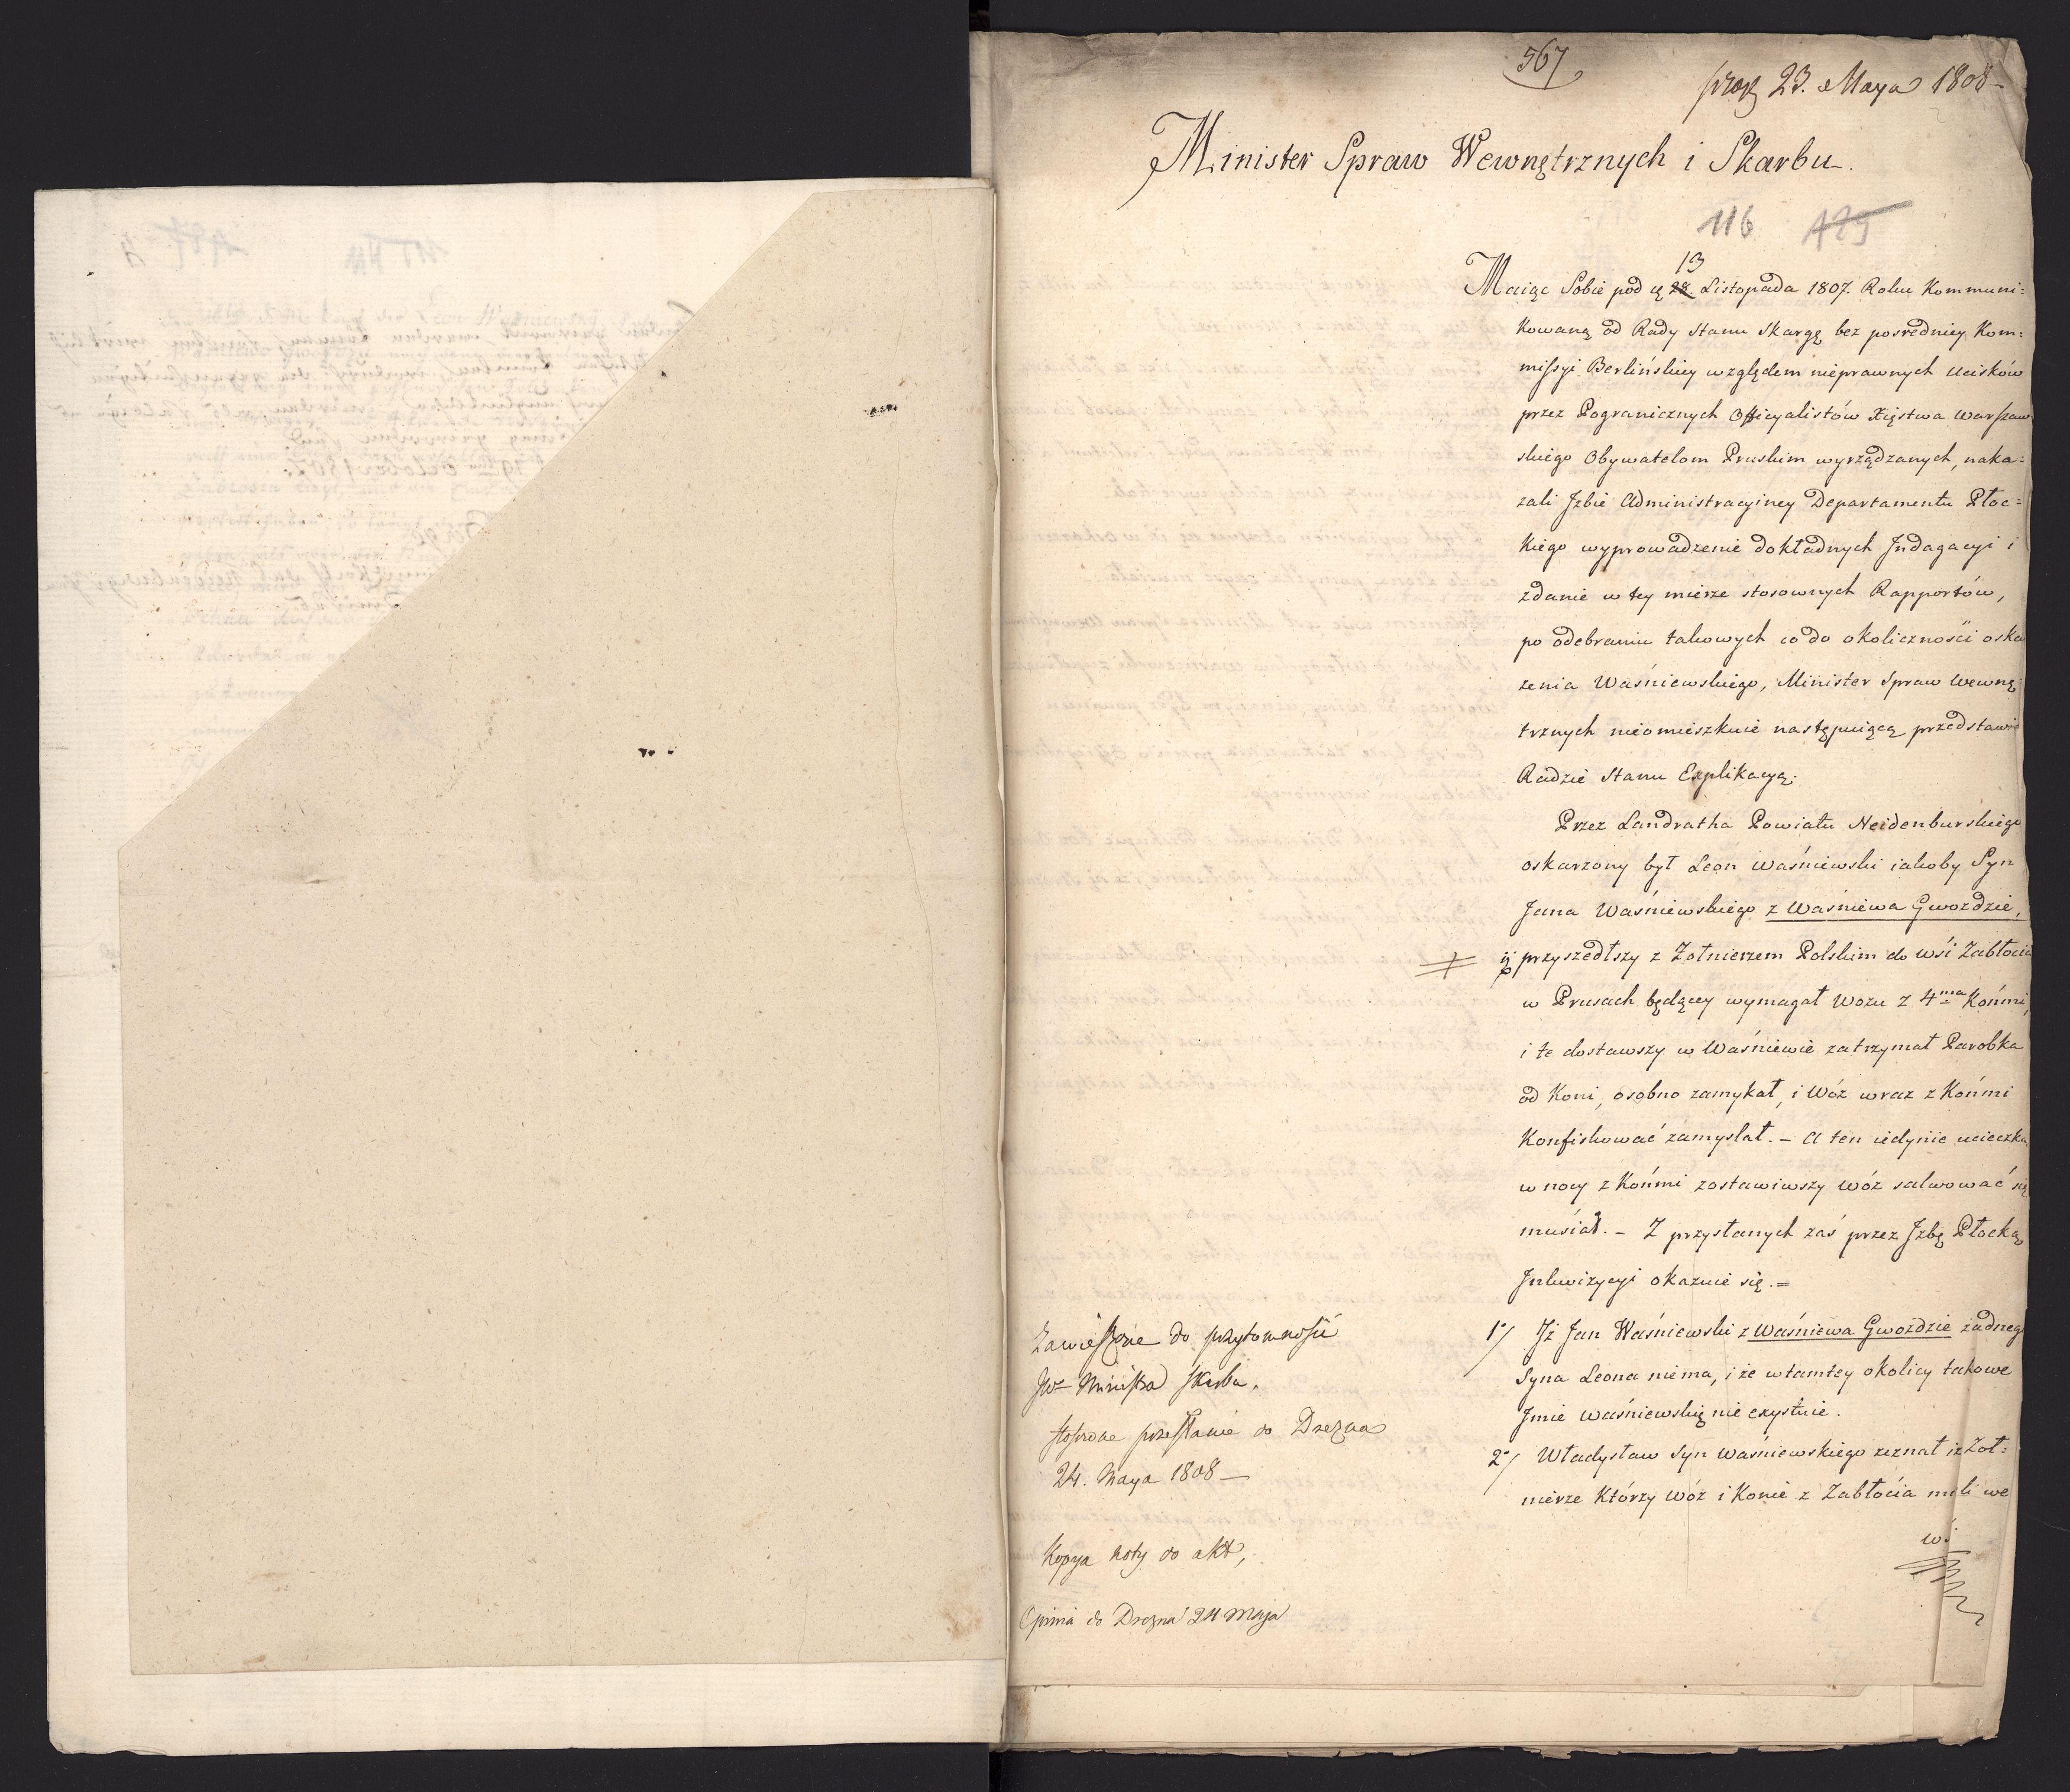 567
23. Maya 1808 -
Minister Spraw Wewnętrznych i Skarbu.
116 129
13
Maiąc Sobie pod dą 28. Listopada 1807. Roku Kommuni:
kowaną od Rady Stanu Skargę bez posredniey Kom:
missyi Berlińskiey względem nieprawnych ucisków
przez Pogranicznych Officyalistów Xięstwa Warszaw
skiego Obywatelom Pruskim wyrządzanych, naka:
zali Jzbie Administracyiney Departamentu Płoc=
kiego wyprowadzenie dokładnych Jndagacyi i
zdanie w tey mierze stosownych Rapportów,
po odebraniu takowych co do okoliczności oska
żenia Waśniewskiego, Minister Spraw Wewnę
trznych nieomieszkuie następuiącą przedstawić
Radzie Stanu Explikacyą.
Przez Landratha Powiatu Neidenburskiego
oskarzony był Leon Waśniewski iakoby Syn
Jana Waśniewskiego z Waśniewa Gwoździe,
iż przyszedłszy z Żołnierzem Polskim do wśi Zabłocia
w Prusach będącey wymagał Wozu z 4ma Końmi,
i te dostawszy w Waśniewie zatrzymał Parobka
od Koni, osobno zamykał, i Wóz wraz z Końmi
Konfiskować zamyslał. - A ten iedynie ucieczką
w nocy z Końmi zostawiwszy wóz salwować się
musiał. - Z przysłanych zaś przez Jzbę Płocką
Jnkwizycyi okazuie się. =
1o/ Jż Jan Waśniewski z Waśniewa Gwoździe żadnego
Syna Leona niema, i że w tamtey okolicy takowe
Jmie Waśniewskię nie exystuie.
2o/ Władysław Syn Waśniewskiego zeznał iż Żoł:
nierze Którzy Wóz i Konie z Zabłocia mieli we
wśi
Zawieszone do przytomności
JW Ministra Skarbu.
stosowne przesłanie do Drezna
24. Maya 1808 -
Kopya noty do akt,
Opinia do Drezna 24 Maja